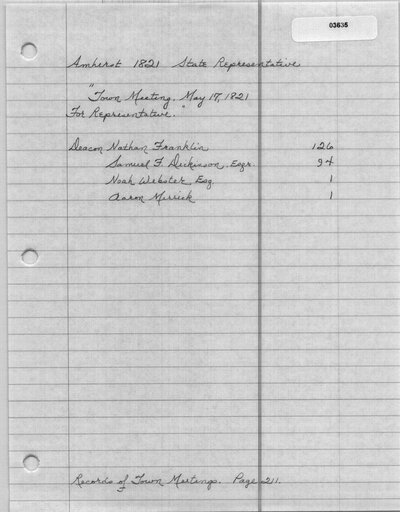 03635
Amherst 1821 State Representative
"Town Meeting, May 17, 1821
For Representative."
Deacon Nathan Franklin 126
Samuel F. Dickinson, Esqr. 94
Noah Webster, Esq. 1
Aaron Merrick 1
Records of Town Meetings. Page 211.